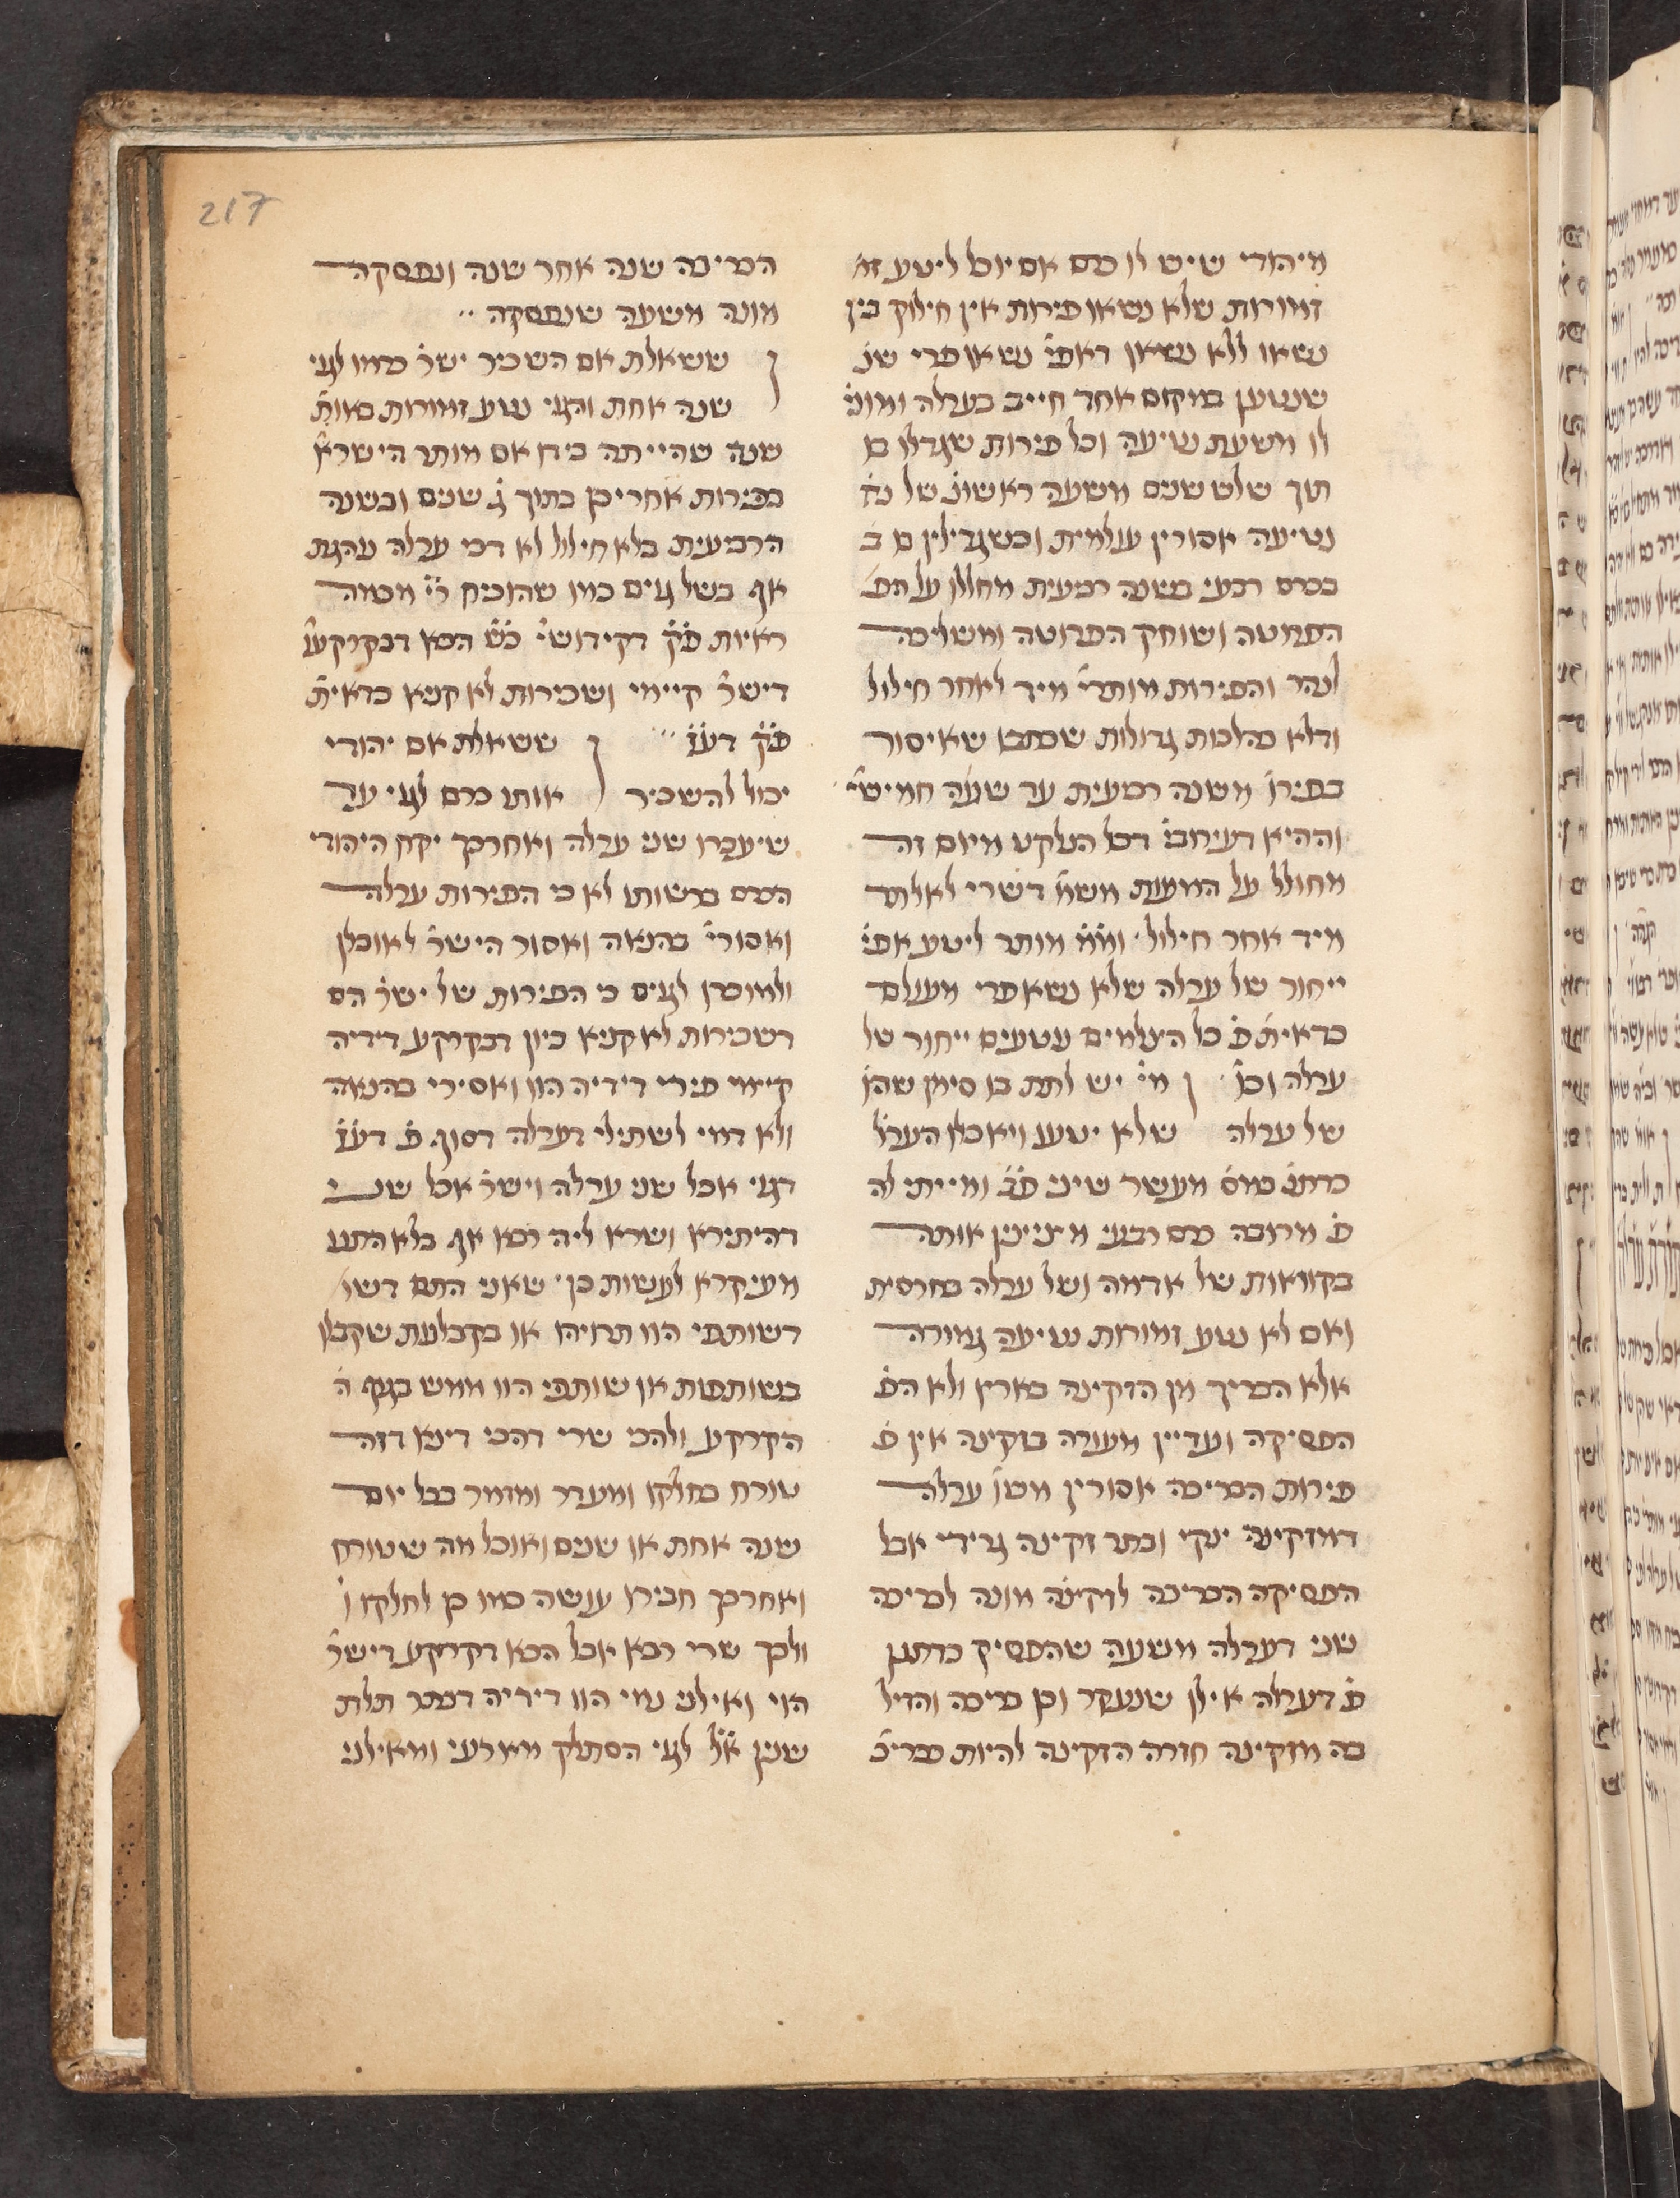 217
מיהודי שיש לו כרם אם יוכל ליטע זה
זמורות שלא נשאו פירות אין חילוק בין
נשאו ללא נשאו דאפי' נשאו פרי שנ'
שנטען במקום אחד חייב בערלה ומונ'
לו משעת נטיעה וכל פירות שגדלו בו
תוך שלש שנים משעה ראשונ' של
נטיעה אסורין עולמית וכשגדילין
בכרם רבעי בשנה רבעית מחללן על הפ'
הפרוטה ושוחק הפרוטה ומשליכה
לנהר והפירות מותרי' מיד לאחר חילול
ודלא כהלכות גדולות שכתבו שאיסור
בפירו' משנה רבעית עד שנה חמישי'
וההיא דעירובי' דכל הנלקט מיום זה
מחולל על המעות משמ' דשרי לאלתר
מיד אחר חילול ומ"מ מותר ליטע אפי'
ייחור של ערלה שלא נשא פרי מעולם
כדאית' פ' כל הצלמים נוטעים ייחור של
ערלה וכו' מי יש לתת בו סימן שהן
של ערלה שלא יטעו ויאכלו הערל'
כדתנ' כרם מעשר שיני פ"ב ומייתי לה
פ' מרובה כרם רבעי מציינין אותה
בקוזאות של אדמה ושל ערלה בחרסית
ואם לא נטע זמורות נטיעה גמורה
אלא הבריך מן הזקינה בארץ ולא הפ'
הפסיקה ועדיין מעורה בזקינה אין פ'
פירות הבריכה אסורין משו' ערלה
דמזקינה ינקי ובתר זקינה גרירי אבל
הפסיקה הבריכה לזקינה מונה לבריכה
שני דערלה משעה שהפסיק כדתנן
פ' דערלה אילן שנעקר וכן בריכה והדיל
בה מזקינה חזרה הזקינה להיות בריכ'
הבריכה שנה אחר שנה ונפסקה
מונה משעה שנפסקה
ששאלת אם השכיר ישר' כרמו לגוי
שנה אחת והגוי נטע זמורות באות'
שנה שהייתה בידו אם מותר הישרא'
בפירות אחריכן בתוך ג' שנים ובשנה
הרביעית בלא חילול לא דמי ערלה נוהגת
אף בשל גוים כמו שהוכיח ר"י מכמה
ראיות פ"ק דקידושי' כ"ש הכא דבקרקע
דישר' קיימי ושכירות לא קניא כדאית'
פ"ק דע"ז ששאלת אם יהודי
יכול להשכיר אותו כרם לגוי עד
שיעברו שני ערלה ואחרכך יקח היהודי
הכרם ברשותו לא כי הפירות ערלה
ואסורי' בהנאה ואסור הישר' לאוכלן
ולמוכרן לגוים כי הפירות של ישר' הם
דשכירות לא קניא כיון דבקרקע דידיה
קיימי פירי דידיה הוו ואסירי בהנאה
ולא דמי לשתילי דערלה דסוף פ' דע"ז
דגוי אכל שני ערלה וישר' אכל שני
דהיתירא ושרא ליה רבא אף בלא התנו
מעיקרא לעשות כן שאני התם דשו'
דשותפי הוו תרויהו או בקבלנות שקבלו
בשותפות או שותפי הוו ממש בגוף ה'
הקרקע ולהכי שרי דהכי דינא דזה
טורח בחלקו ומעדר ומזמר בכל יום
שנה אחת או שנים ואוכל מה שטורח
ואחרכך חבירו עושה כמו כן לחלקו ו'
ולכך שרי רבא אבל הכא דקרקע דישר'
הוי ואילני נמי הוו דידיה דבתר תלת
שנין א"ל לגוי הסתלק מארעי ומאילני